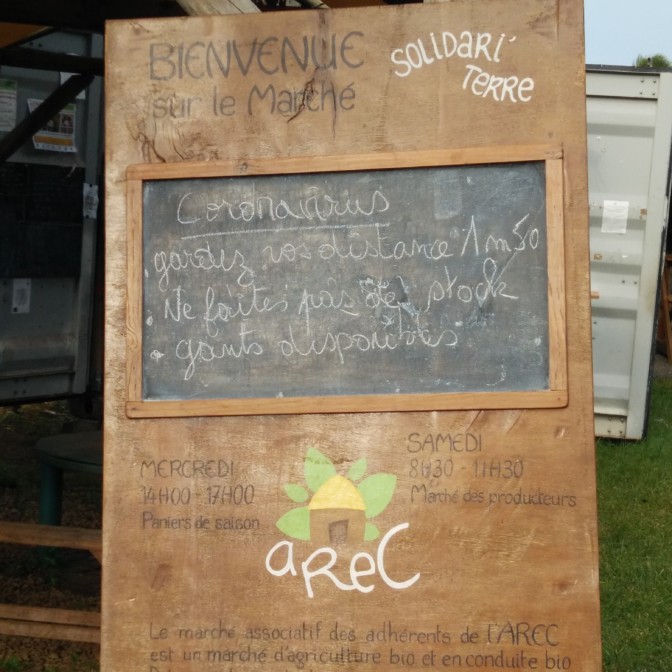 BIENVENUE
sur le Marché
SOLIDARI'
TERRE
Coronavirus
. gardez vos distance 1m50
. Ne faites pas de stock
. gants disponibles
MERCREDI
14H00 - 17H00
Paniers de saison
SAMEDI
8H30 - 11H30
Marché des producteurs
aReC
Le marché associatif des adhérents de l'AREC
est un marché d'agriculture bio et en conduite bio